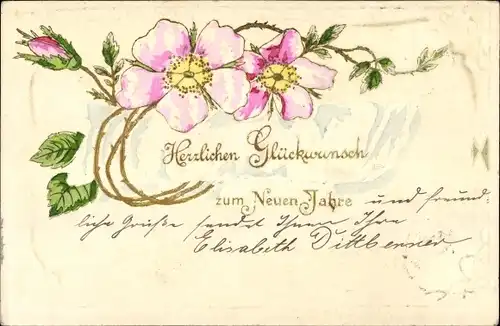 Herzlichen Glückwunsch
zum Neuen Jahre und freund-
liche Grüße sendet Ihnen Ihre
Elisabeth Dittberner